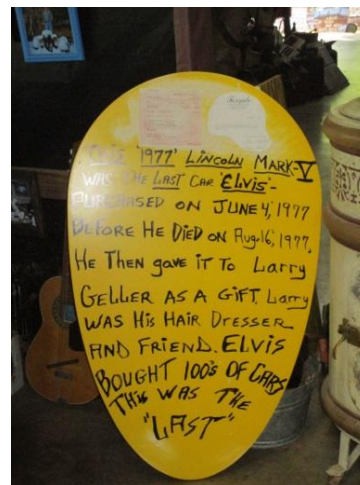 THIS '1977' LINCOLN MARK-V
WAS THE LAST CAR 'ELVIS'-
PURCHASED ON JUNE 4, 1977
BEFORE HE DIED ON Aug. 16, 1977,
He Then gave iT To Larry
GELLER AS A GIFT, Larry
WAS HiS HAIR DRESSER
AND FRIEND. ELVIS
BOUGHT 100'S OF CARS
THiS WAS THE
"LAST"